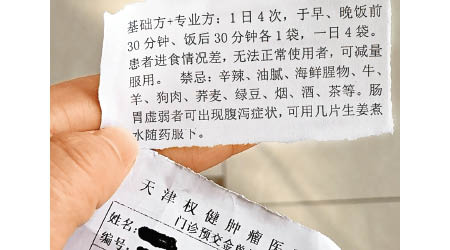 基础方+专业方：1日4次，于早、晚饭前
30分钟、饭后30分钟各1袋，一日4袋。
患者进食情况差，无法正常使用者，可减量
服用。 禁忌：辛辣、油腻、海鲜腥物、牛、
羊、狗肉、荞麦、绿豆、烟、酒、茶等。肠
胃虚弱者可出现腹泻症状，可用几片生姜煮
水随药服下。
天津权健肿瘤医
门诊预交金
姓名：
编号：